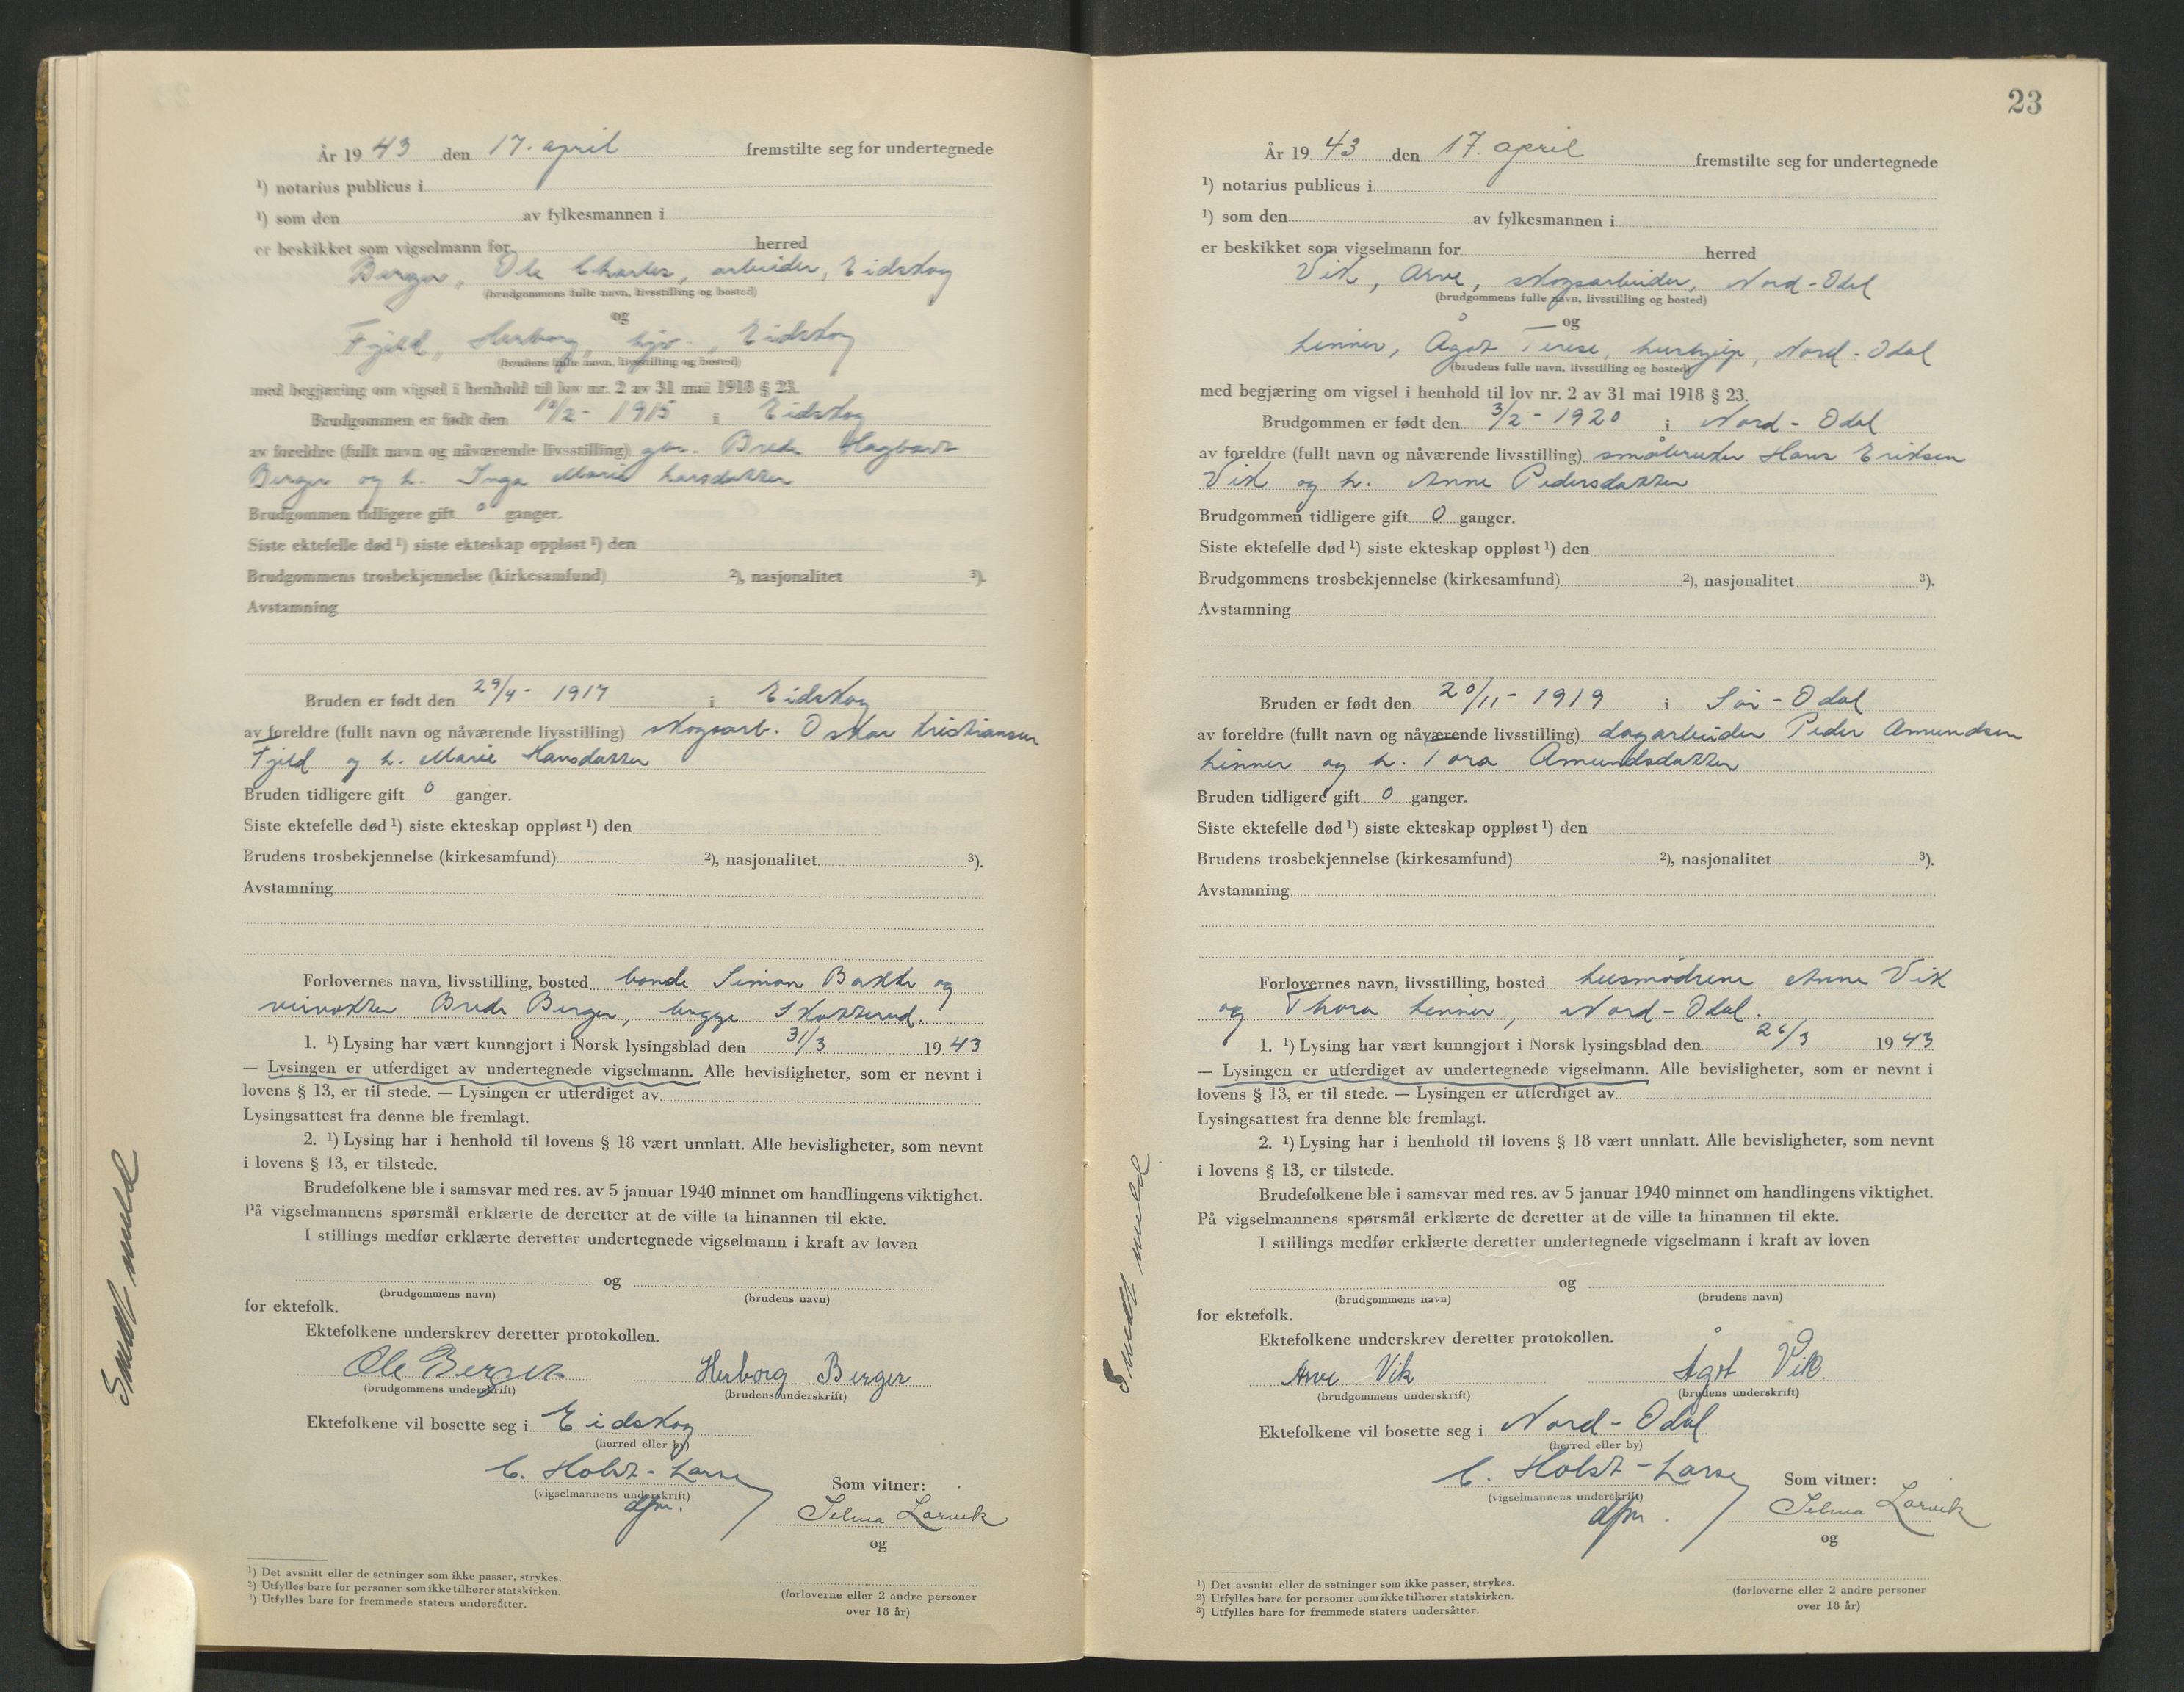 År 19 43 den 17. april fremstilte seg for undertegnede
¹) notarius publicus i
¹) som den av fylkesmannen i
er beskikket som vigselmann for herred
Berger, Ole Charles, arbeider, Eidskog
(brudgommens fulle navn, livsstilling og bosted)
og
Fjeld, Herborg, hjv., Eidskog
(brudens fulle navn, livsstilling og bosted)
med begjæring om vigsel i henhold til lov nr. 2 av 31 mai 1918 § 23.
Brudgommen er født den /2 - 1915 i Eidskog
av foreldre (fullt navn og nåværende livsstilling) gbr. Brede Hagbart
Berger og h. Inga Marie Larsdatter
Brudgommen tidligere gift 0 ganger.
Siste ektefelle død ¹) siste ekteskap oppløst ¹) den
Brudgommens trosbekjennelse (kirkesamfund) ²), nasjonalitet ³).
Avstamning
Bruden er født den 29/4 - 1917 i Eidskog
av foreldre (fullt navn og nåværende livsstilling) skogsarb. Oskar Kristiansen
Fjeld og h. Marie Hansdatter
Bruden tidligere gift 0 ganger.
Siste ektefelle død ¹) siste ekteskap oppløst ¹) den
Brudens trosbekjennelse (kirkesamfund) ²), nasjonalitet ³).
Avstamning
Forlovernes navn, livsstilling, bosted bonde Simon Bakke og
veivokter Brede Berger, begge Skotterud.
1. ¹) Lysing har vært kunngjort i Norsk lysingsblad den 31/3 19 43
— Lysingen er utferdiget av undertegnede vigselmann. Alle bevisligheter, som er nevnt i
lovens § 13, er til stede. — Lysingen er utferdiget av
Lysingsattest fra denne ble fremlagt.
2. ¹) Lysing har i henhold til lovens § 18 vært unnlatt. Alle bevisligheter, som nevnt
i lovens § 13, er tilstede.
Brudefolkene ble i samsvar med res. av 5 januar 1940 minnet om handlingens viktighet.
På vigselmannens spørsmål erklærte de deretter at de ville ta hinannen til ekte.
I stillings medfør erklærte deretter undertegnede vigselmann i kraft av loven
og
(brudgommens navn) (brudens navn)
for ektefolk.
Ektefolkene underskrev deretter protokollen.
Ole Berger Herborg Berger
(brudgommens underskrift) (brudens underskrift)
Ektefolkene vil bosette seg i Eidskog
(herred eller by)
C. Holst-Larsen
(vigselmannens underskrift) Som vitner:
dfm. Selma Larvik
og
(forloverne eller 2 andre personer
over 18 år)
¹) Det avsnitt eller de setninger som ikke passer, strykes.
²) Utfylles bare for personer som ikke tilhører statskirken.
³) Utfylles bare for fremmede staters undersåtter.
Sendt meld
23
År 19 43 den 17. april fremstilte seg for undertegnede
¹) notarius publicus i
¹) som den av fylkesmannen i
er beskikket som vigselmann for herred
Vik, Arve, skogsarbeider, Nord-Odal
(brudgommens fulle navn, livsstilling og bosted)
og
Linner, Ågot Terese, hushjelp, Nord-Odal
(brudens fulle navn, livsstilling og bosted)
med begjæring om vigsel i henhold til lov nr. 2 av 31 mai 1918 § 23.
Brudgommen er født den 3/2 - 1920 i Nord-Odal
av foreldre (fullt navn og nåværende livsstilling) småbruker Hans Eriksen
Vik og h. Anne Pedersdatter
Brudgommen tidligere gift 0 ganger.
Siste ektefelle død ¹) siste ekteskap oppløst ¹) den
Brudgommens trosbekjennelse (kirkesamfund) ²), nasjonalitet ³).
Avstamning
Bruden er født den 20/11 - 1919 i Sør-Odal
av foreldre (fullt navn og nåværende livsstilling) dagarbeider Peder Amundsen
Linner og h. Tora Amundsdatter
Bruden tidligere gift 0 ganger.
Siste ektefelle død ¹) siste ekteskap oppløst ¹) den
Brudens trosbekjennelse (kirkesamfund) ²), nasjonalitet ³).
Avstamning
Forlovernes navn, livsstilling, bosted husmødrene Anne Vik
og Thora Linner, Nord-Odal.
1. ¹) Lysing har vært kunngjort i Norsk lysingsblad den 26/3 19 43
— Lysingen er utferdiget av undertegnede vigselmann. Alle bevisligheter, som er nevnt i
lovens § 13, er til stede. — Lysingen er utferdiget av
Lysingsattest fra denne ble fremlagt.
2. ¹) Lysing har i henhold til lovens § 18 vært unnlatt. Alle bevisligheter, som nevnt
i lovens § 13, er tilstede.
Brudefolkene ble i samsvar med res. av 5 januar 1940 minnet om handlingens viktighet.
På vigselmannens spørsmål erklærte de deretter at de ville ta hinannen til ekte.
I stillings medfør erklærte deretter undertegnede vigselmann i kraft av loven
og
(brudgommens navn) (brudens navn)
for ektefolk.
Ektefolkene underskrev deretter protokollen.
Arve Vik Ågot Vik.
(brudgommens underskrift) (brudens underskrift)
Ektefolkene vil bosette seg i Nord-Odal
(herred eller by)
C. Holst-Larsen
(vigselmannens underskrift) Som vitner:
dfm. Selma Larvik
og
(forloverne eller 2 andre personer
over 18 år)
¹) Det avsnitt eller de setninger som ikke passer, strykes.
²) Utfylles bare for personer som ikke tilhører statskirken.
³) Utfylles bare for fremmede staters undersåtter.
Sendt meld.